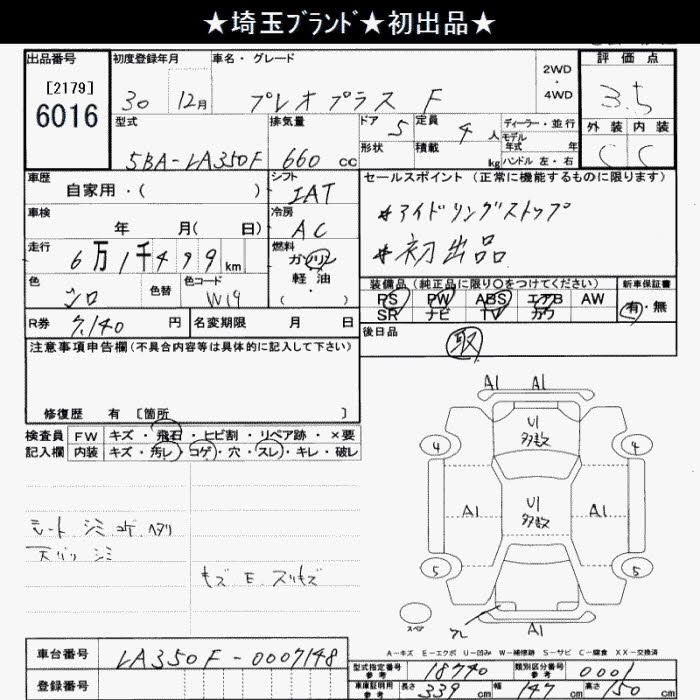 ★埼玉ﾌﾞﾗﾝﾄﾞ★初出品★
出品番号 初度登録年月 車名・グレード 2WD・4WD 評価点
[2179] 6016 30 12月 プレオプラス F 3.5
型式 排気量 ドア 5 定員 4人 ディーラー・並行 外装 内装
形状 積載 kg モデル年式 年 C C
5BA-LA350F 660cc ハンドル 左・右
車歴 シフト セールスポイント (正常に機能するものに限ります)
自家用・( ) IAT
車検 冷房 *アイドリングストップ
年 月( 日) AC *初出品
走行 燃料
6万1千499km ガソリン・軽油・( )
色 色替 色コード 装備品(純正品に限り○をつけてください) 新車保証書
シロ W19 PS PW ABS エアB AW 有・無
SR ナビ TV カワ
R券 7,140円 名変期限 月 日 後日品
取
注意事項申告欄(不具合内容等は具体的に記入して下さい)
修復歴 有 [箇所 ]
検査員 FW キズ・飛石・ヒビ割・リペア跡・×要
記入欄 内装 キズ・汚レ・コゲ・穴・スレ・キレ・破レ
A1 A1
U1 多数
4 4
A1 U1 多数 A1
シート シミ コゲ ヘタリ
天バリ シミ
キズ E スリキズ
5 5
スペア A1
A－キズ E－エクボ U－凹み W－補修跡 S－サビ C－腐食 XX－交換済
車台番号 LA350F-0007148
型式指定番号 参考 18740 類別区分番号 参考 0001
登録番号
車庫証明用 参考 長さ 339cm 幅 147cm 高さ 150cm